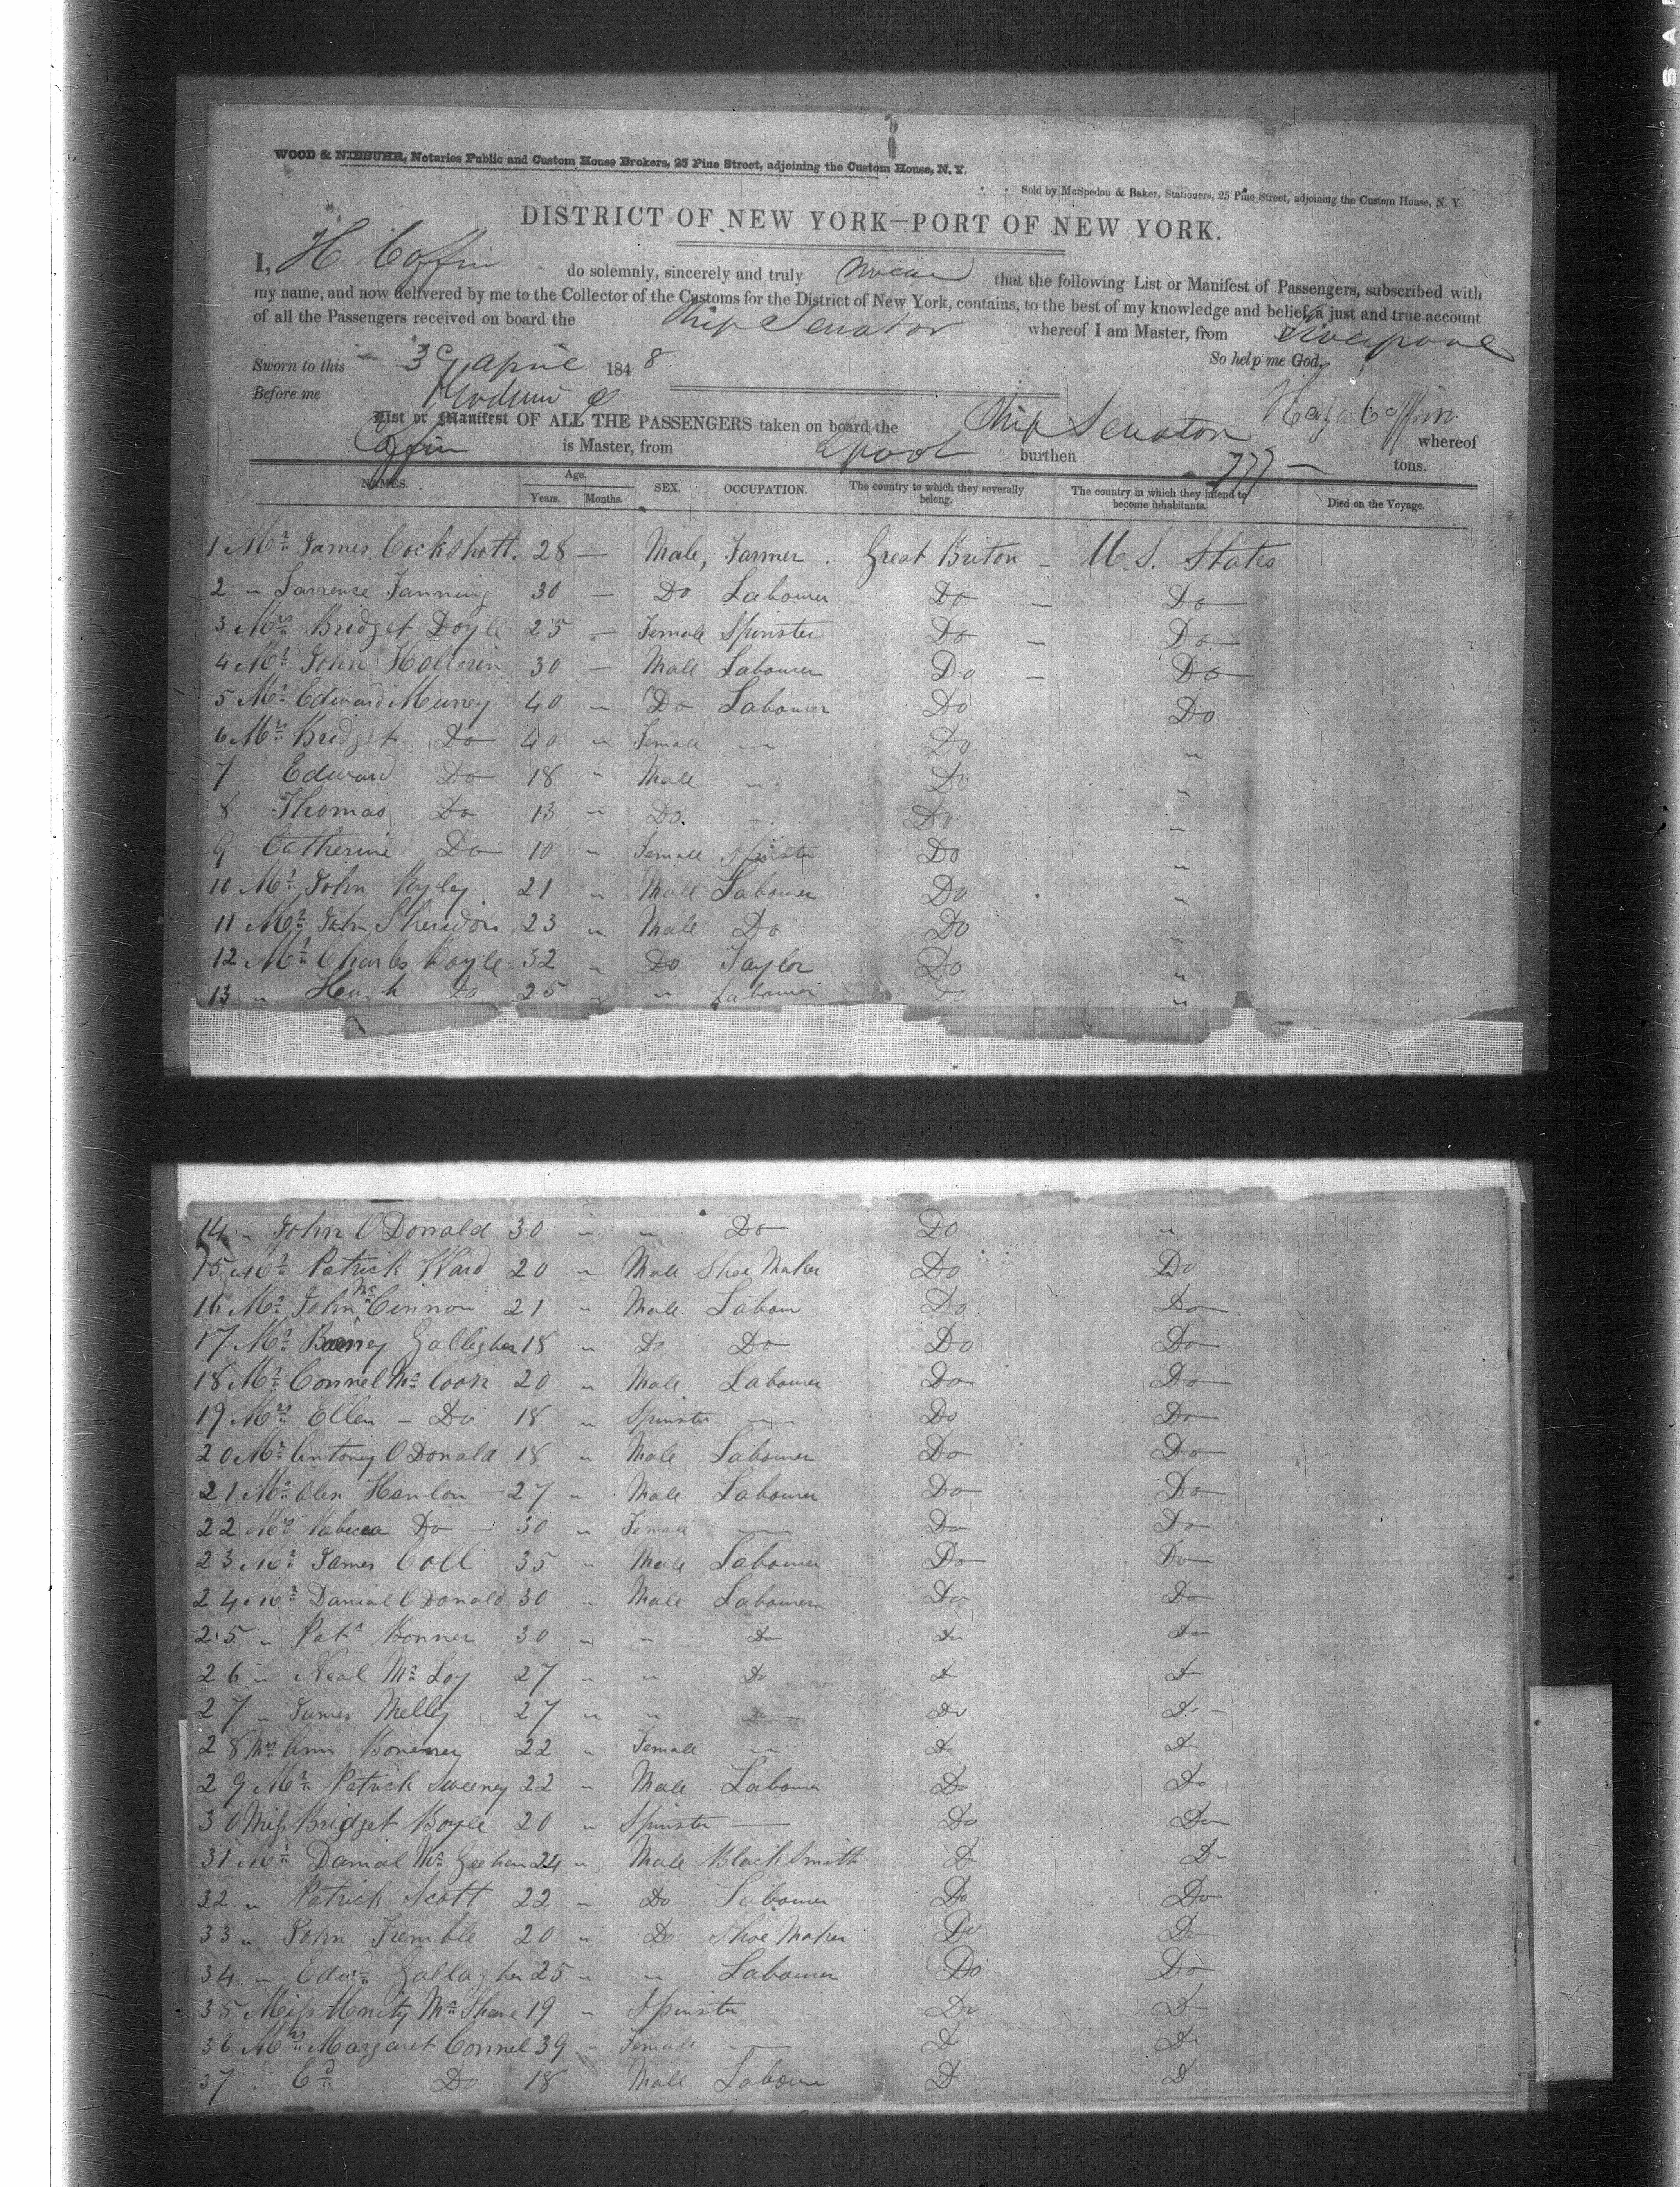 WOOD & NIEBUHR, Notaries Public and Custom House Brokers, 25 Pine Street, adjoining the Custom House, N. Y.
Sold by McSpedon & Baker, Stationers, 25 Pine Street, adjoining the Custom House, N. Y.
DISTRICT OF NEW YORK—PORT OF NEW YORK.
I, H Coffin do solemnly, sincerely and truly swear that the following List or Manifest of Passengers, subscribed with
my name, and now delivered by me to the Collector of the Customs for the District of New York, contains, to the best of my knowledge and belief, a just and true account
of all the Passengers received on board the Ship Senator whereof I am Master, from Liverpool
Sworn to this april 1848 So help me God,
Before me Coffin
List or Manifest OF ALL THE PASSENGERS taken on board the Ship Senator whereof
Coffin is Master, from Lpool burthen 777 — tons.
NAMES. Age. Years. Months. SEX. OCCUPATION. The country to which they severally belong. The country in which they intend to become inhabitants. Died on the Voyage.
1 Mr James Cockshott. 28 — Male, Farmer. Great Briton — U.S. States
2 " Fanning 30 — Do Labourer Do — Do
3 Mrs Bridget Doyle 25 — Female Spinster Do — Do
4 Mr John Hollorin 30 — Male Labourer Do — Do
5 Mr Edward Murrey 40 " Do Labourer Do Do
6 Mrs Bridget Do 40 " Female — Do "
7 Edward Do 18 " Male " Do "
8 Thomas Do 13 " Do. — Do "
9 Catherine Do 10 " Female Spinster Do "
10 Mr John Ryley 21 " Male Labourer Do "
11 Mr John Sheridon 23 " Male Do Do "
12 Mr Charles Boyle 32 " Do Taylor Do "
13 " Hugh Do 25 " " Labourer Do "
14 " John O Donald 30 " " Do Do "
15 Mr Patrick Ward 20 " Male Shoe Maker Do Do
16 Mr John Mc Cinnon 21 " Male Labour Do Do
17 Mr Gallighen 18 " Do Do Do Do
18 Mr Connel Mc Coon 20 " Male Labourer Do Do
19 Mrs Ellen — Do 18 " Spinster — Do Do
20 Mr Antoney O Donald 18 " Male Labourer Do Do
21 Mr Alex Hanlon — 27 " Male Labourer Do Do
22 Mrs Rabecca Do — 30 " Female — Do Do
23 Mr James Coll 35 " Male Labourer Do Do
24 Mr Danial O Donald 30 " Male Labourer Do Do
25 " Patk Bonner 30 " " Do Do Do
26 " Neal Mc Loy 27 " " Do Do Do
27 " James Melley 27 " " Do — Do Do —
28 Mrs Ann 22 " Female " Do Do
29 Mr Patrick Sweeney 22 " Male Labour Do Do
30 Miss Bridget Boyle 20 " Spinster — Do Do
31 Mr Danial Mc Geehan 24 " Male Black Smith Do Do
32 " Patrick Scott 22 " Do Labourer Do Do
33 " John Tremble 20 " Do Shoe Maker Do Do
34 " Edwd Gallagher 25 " " Labourer Do Do
35 Miss Mc Shane 19 " Spinster Do Do
36 Mrs Margaret Connel 39 " Female — Do Do
37 Ed Do 18 Male Labour Do Do